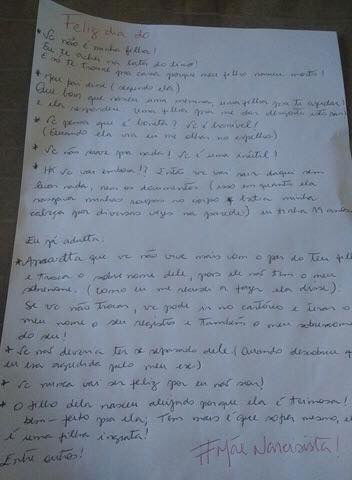 Feliz dia do
* Vc não é minha filha!
Eu te achei na lata do lixo!
E só te trouxe pra casa porque meu filho nasceu morto!
* Meu pai disse (segundo ela)
Que bom que nasceu uma menina, uma filha pra te ajudar!
e ela respondeu: Uma filha pra me dar desgosto isto sim!
* Vc pensa que é bonita? Vc é horrível!
(Quando ela via eu me olhar no espelho)
* Vc não serve pra nada! Vc é uma inútil!
* Há Vc vai embora!? Então vc vai sair daqui sem
levar nada, nem os documentos (isso enquanto ela
rasgava minhas roupas no corpo e batia minha
cabeça por diversas vezes na parede) eu tinha 19 anos
Eu já adulta.
* Aproveita que vc não vive mais com o pai do teu filho
e troca o sobrenome dele, pois ele não tem o meu
sobrenome. (Como eu me recusei a fazer ela disse).
Se vc não trocar, vc pode ir no cartório e tirar o
meu nome do seu registro e também o meu sobrenome
do seu!
* Vc não deveria ter se separado dele (Quando descobriu q
eu era agredida pelo meu ex)
* Vc nunca vai ser feliz por eu não sou)
* O filho dela nasceu aleijado porque ela é teimosa!
bem-feito pra ela, Tem mais é que sofrer mesmo,
é uma filha ingrata!
Entre outros!
#Mãe Narcisista!